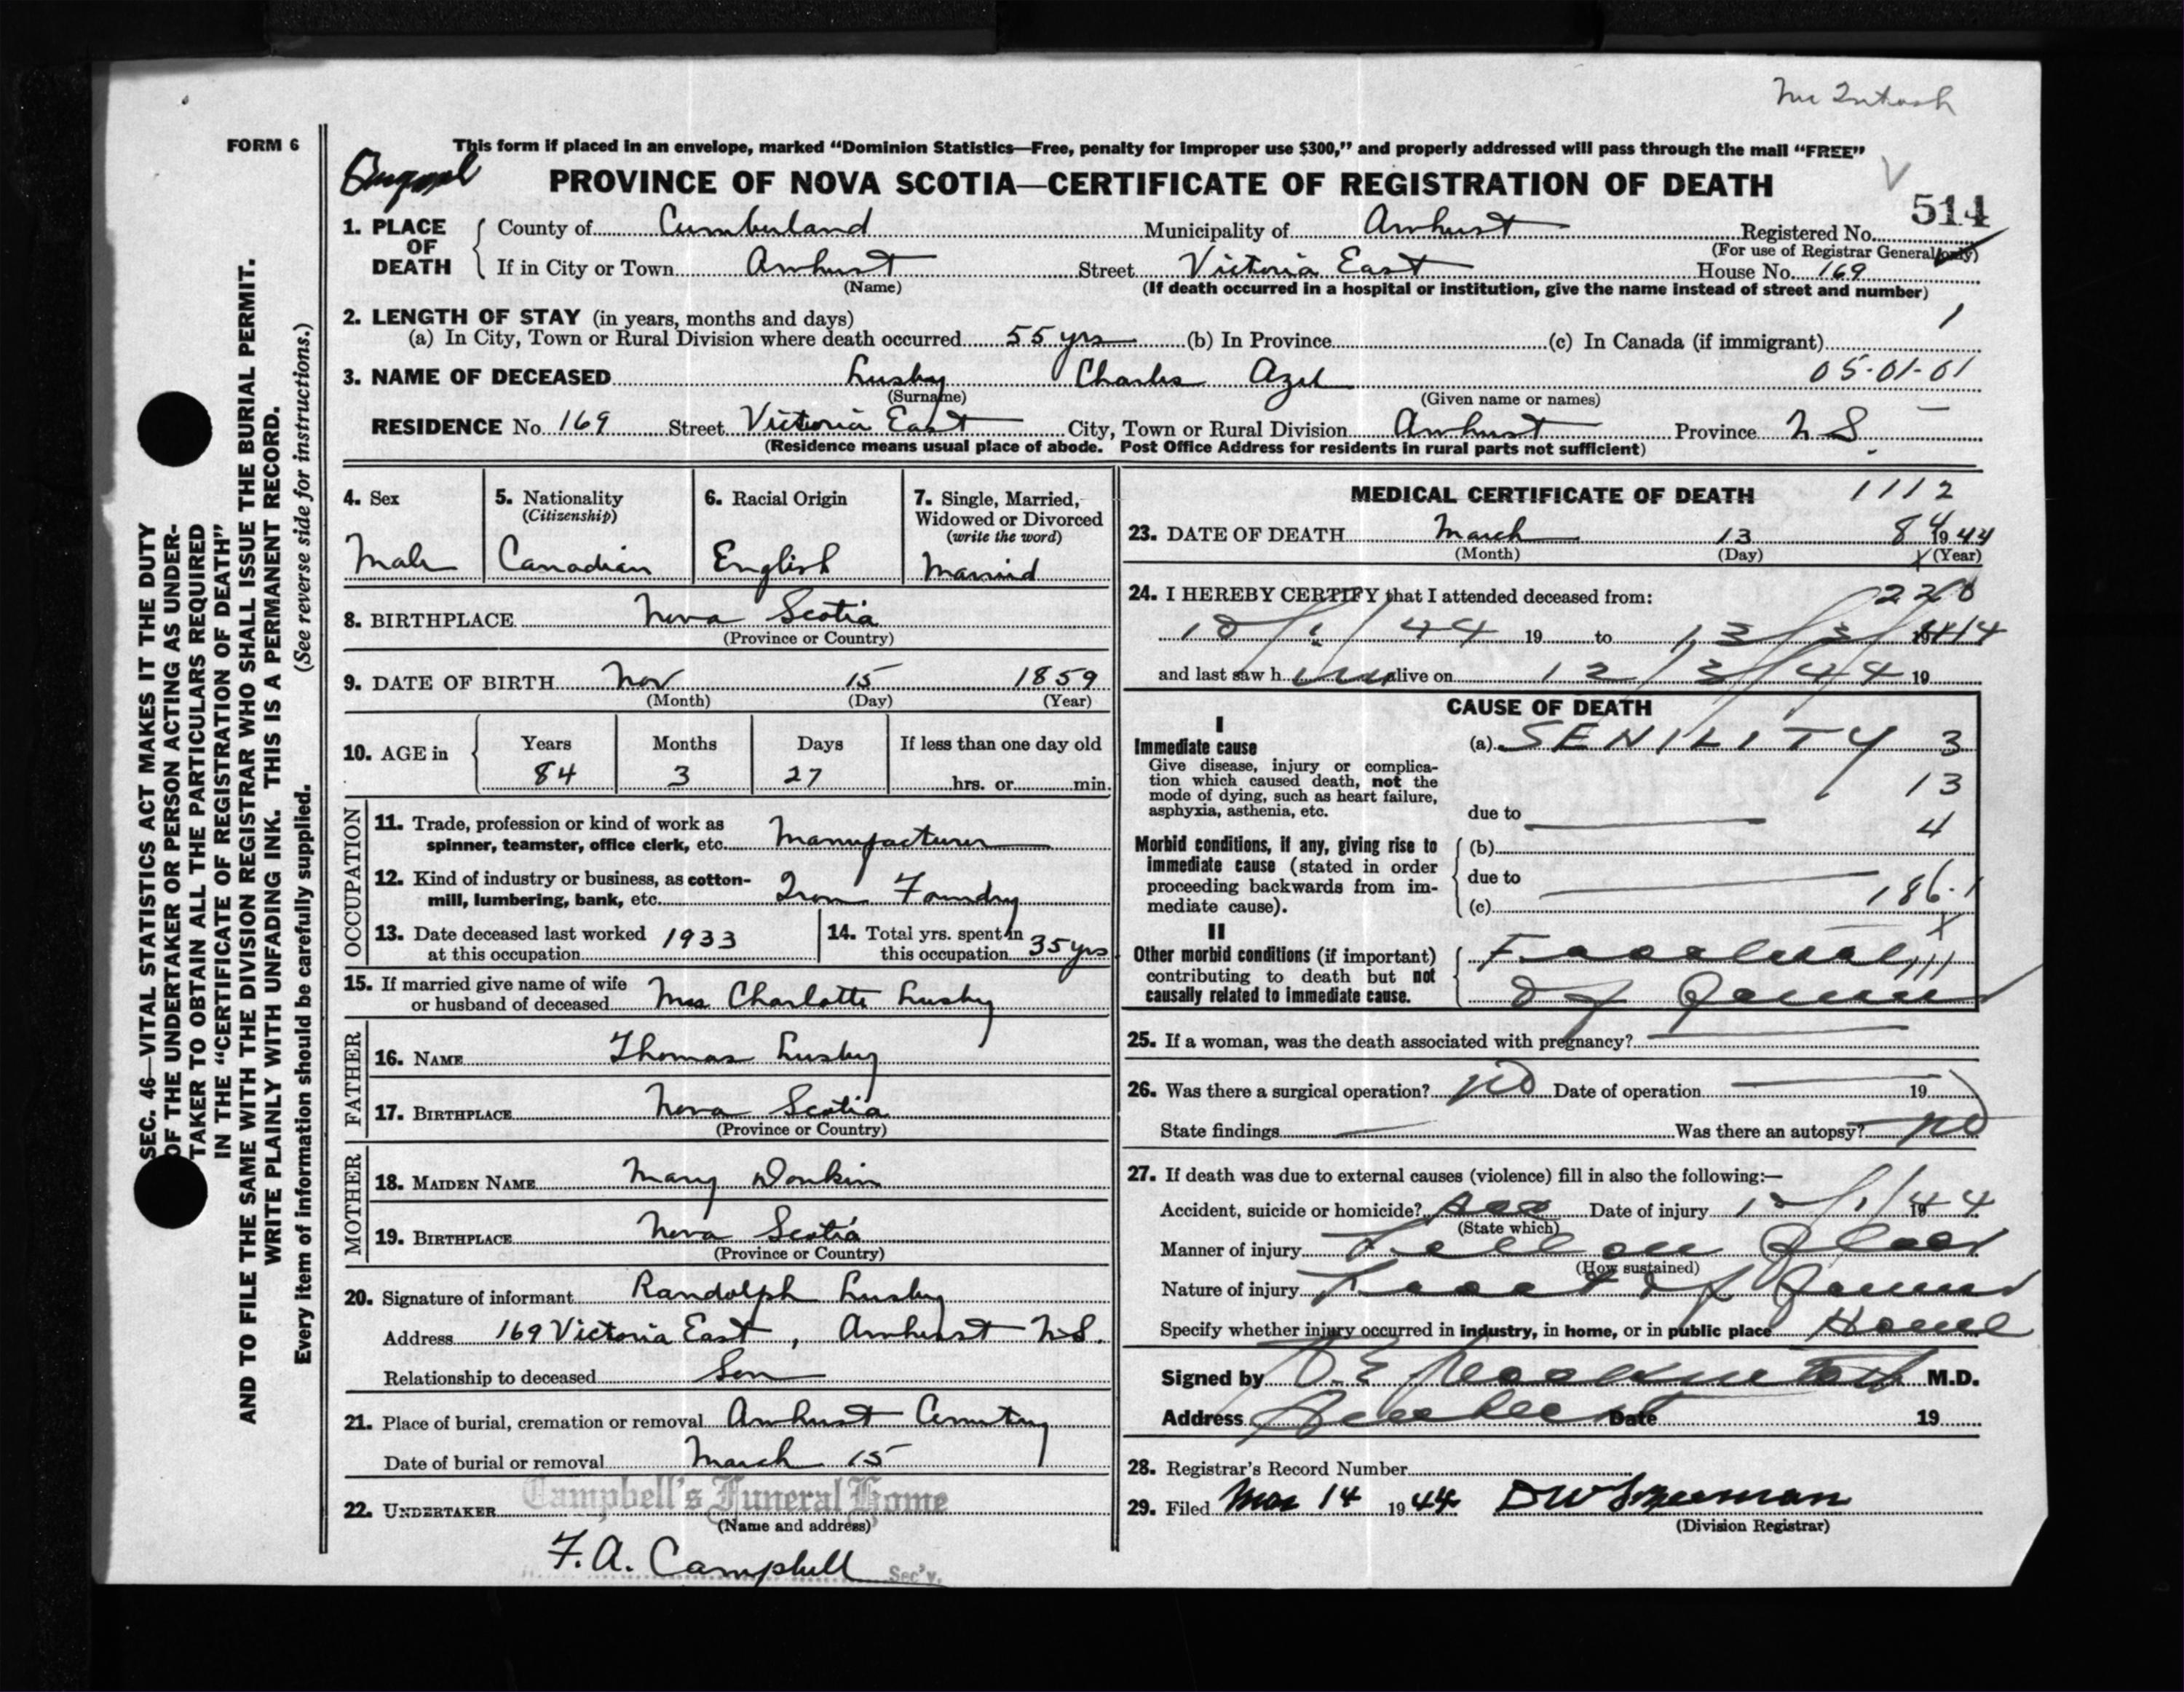 Mc Intosh
FORM 6
This form if placed in an envelope, marked “Dominion Statistics—Free, penalty for improper use $300,” and properly addressed will pass through the mail “FREE”
PROVINCE OF NOVA SCOTIA—CERTIFICATE OF REGISTRATION OF DEATH
514
1. PLACE OF DEATH
County of Cumberland Municipality of Amherst Registered No.
(For use of Registrar General only)
If in City or Town Amherst Street Victoria East House No. 169
(Name) (If death occurred in a hospital or institution, give the name instead of street and number)
1
2. LENGTH OF STAY (in years, months and days)
(a) In City, Town or Rural Division where death occurred 55 yrs (b) In Province (c) In Canada (if immigrant)
3. NAME OF DECEASED Lusby Charles Azel 05-01-01
(Surname) (Given name or names)
RESIDENCE No. 169 Street Victoria East City, Town or Rural Division Amherst Province N S
(Residence means usual place of abode. Post Office Address for residents in rural parts not sufficient)
4. Sex
Male
5. Nationality
(Citizenship)
Canadian
6. Racial Origin
English
7. Single, Married,
Widowed or Divorced
(write the word)
Married
8. BIRTHPLACE Nova Scotia
(Province or Country)
9. DATE OF BIRTH Nov 15 1859
(Month) (Day) (Year)
10. AGE in
Years Months Days If less than one day old
84 3 27 hrs. or min.
OCCUPATION
11. Trade, profession or kind of work as
spinner, teamster, office clerk, etc. Manufacturer
12. Kind of industry or business, as cotton-
mill, lumbering, bank, etc. Iron Foundry
13. Date deceased last worked
at this occupation 1933
14. Total yrs. spent in
this occupation 35 yrs
15. If married give name of wife
or husband of deceased Mrs Charlotte Lusby
FATHER
16. NAME Thomas Lusby
17. BIRTHPLACE Nova Scotia
(Province or Country)
MOTHER
18. MAIDEN NAME Mary Donkin
19. BIRTHPLACE Nova Scotia
(Province or Country)
20. Signature of informant Randolph Lusby
Address 169 Victoria East, Amherst N.S.
Relationship to deceased Son
21. Place of burial, cremation or removal Amherst Cemetery
Date of burial or removal March 15
22. UNDERTAKER Campbell's Funeral Home
(Name and address)
F. A. Campbell Sec'y.
MEDICAL CERTIFICATE OF DEATH 1112
23. DATE OF DEATH March 13 84 1944
(Month) (Day) (Year)
24. I HEREBY CERTIFY that I attended deceased from:
10/1/44 19 to 13/3/44
and last saw h im alive on 12/3/44 19
CAUSE OF DEATH
I
Immediate cause
Give disease, injury or complica-
tion which caused death, not the
mode of dying, such as heart failure,
asphyxia, asthenia, etc.
(a) SENILITY 3
13
due to
4
Morbid conditions, if any, giving rise to
immediate cause (stated in order
proceeding backwards from im-
mediate cause).
(b)
due to
186.1
(c)
II
Other morbid conditions (if important)
contributing to death but not
causally related to immediate cause.
of
25. If a woman, was the death associated with pregnancy?
26. Was there a surgical operation? no Date of operation 19
State findings Was there an autopsy? no
27. If death was due to external causes (violence) fill in also the following:—
Accident, suicide or homicide? Acc Date of injury 10/1/1944
(State which)
Manner of injury Fell on floor
(How sustained)
Nature of injury Fract of Femur
Specify whether injury occurred in industry, in home, or in public place Home
Signed by M.D.
Address Amherst Date 19
28. Registrar's Record Number
29. Filed Mar 14 1944
(Division Registrar)
SEC. 46—VITAL STATISTICS ACT MAKES IT THE DUTY
OF THE UNDERTAKER OR PERSON ACTING AS UNDER-
TAKER TO OBTAIN ALL THE PARTICULARS REQUIRED
IN THE “CERTIFICATE OF REGISTRATION OF DEATH”
AND TO FILE THE SAME WITH THE DIVISION REGISTRAR WHO SHALL ISSUE THE BURIAL PERMIT.
WRITE PLAINLY WITH UNFADING INK. THIS IS A PERMANENT RECORD.
Every item of information should be carefully supplied. (See reverse side for instructions.)